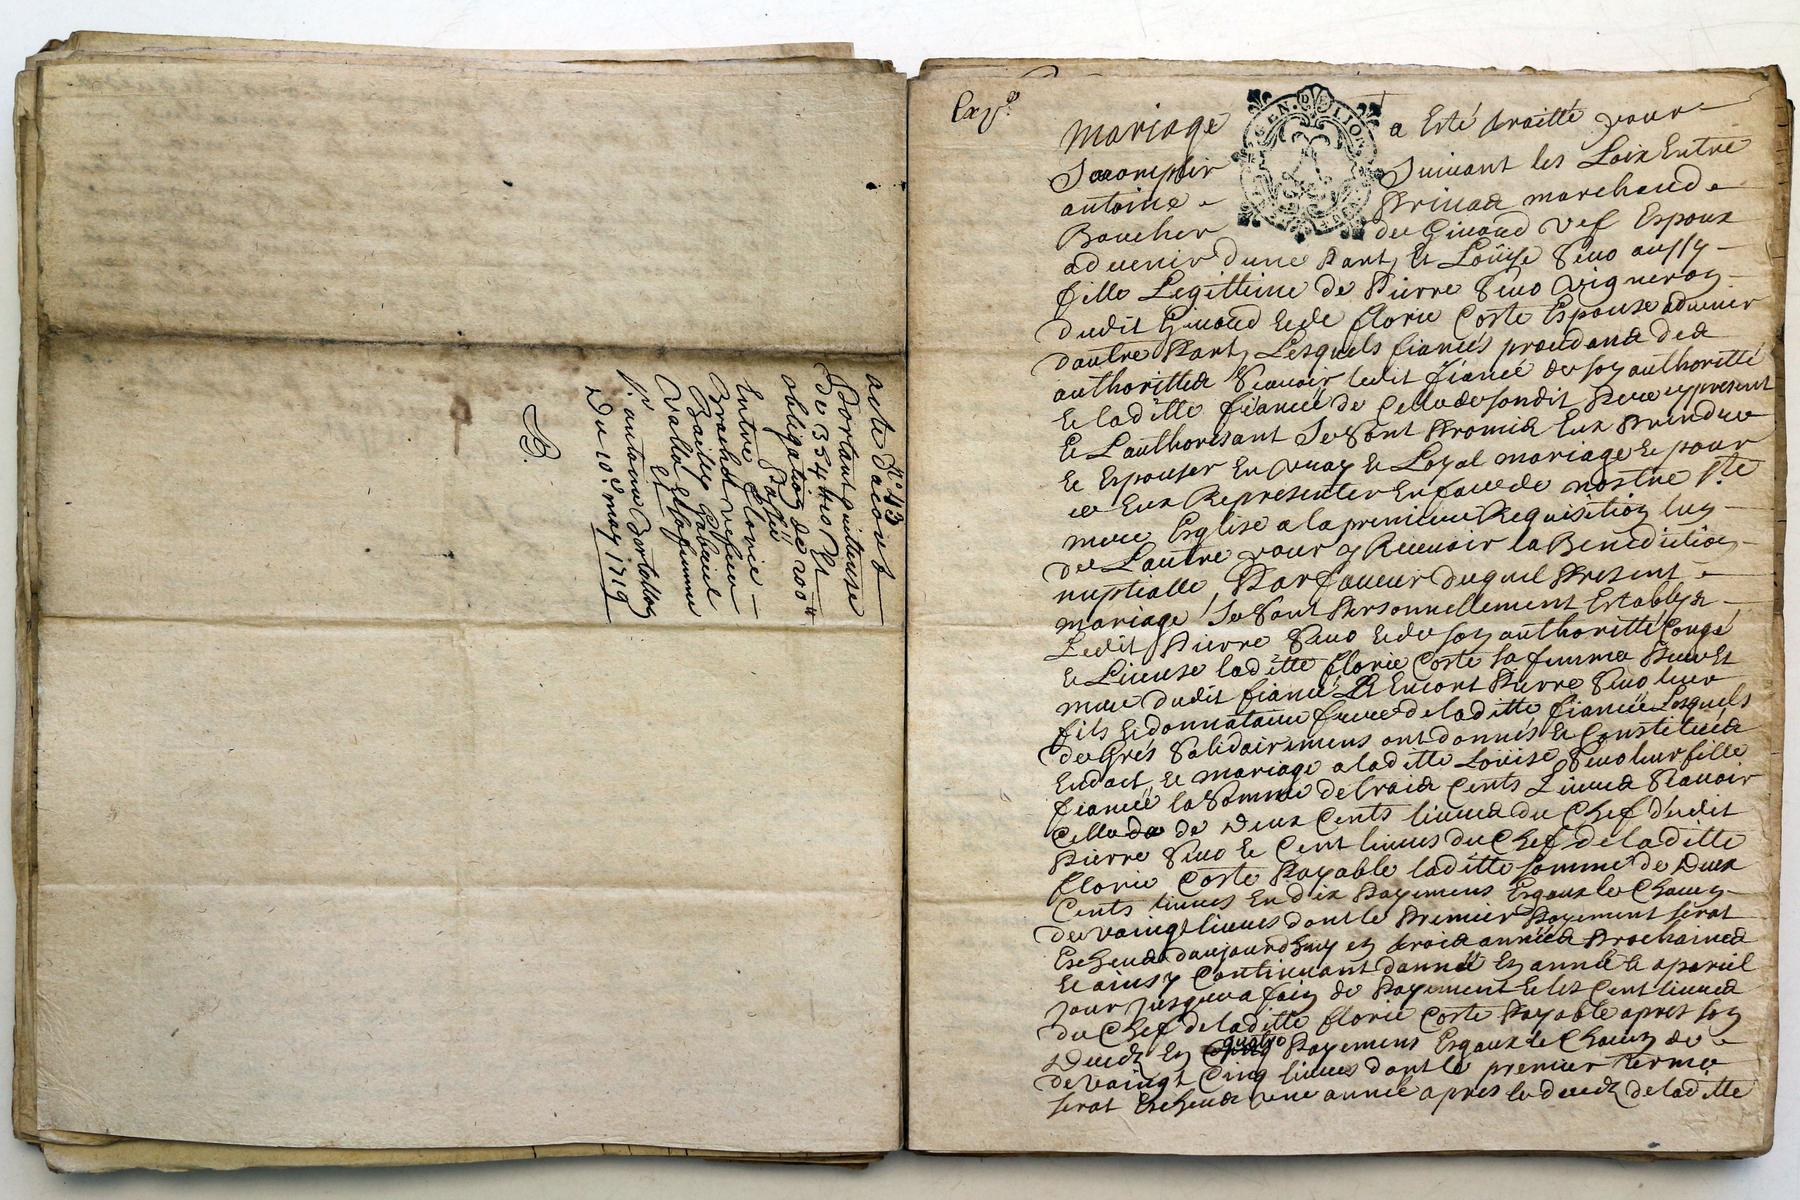 N.° 43
acte d'acort
Portant quittense
De 354 ... Et
obligation de 200 ₶
Passée
Entre Florie
Brachet vefue
Bailly Gabriel
Vallot Et sa femme
Et
Sr. antoine Bertollon
Du 10e. may 1719
B.
Exp.
GEN. DE LION
Mariage a Esté traitté pour
Saccomplir Suiuant les Loix Entre
antoine marchand
Boucher de Giuord vef Espoux
aduenir d'une Part, Et Loüise Seuo aussy
fille Legittime de Pierre Seuo vigneron
dudit Giuord Et de florie Coste Espouse aduenir
dautre Part, Lesquels fiancés procedans des
authorittes Scauoir ledit fiancé de son authoritté
Et laditte fiancée de Celle de sondit Pere cy present
Et L'authorisant Se Sont Promis Eux Prindre
Et Espouser En vray Et Loyal mariage Et pour
ce Eux Representer En face de nostre Ste
mere Eglise a la premiere Requisition lun
de Lautre pour y Receuoir la Benediction
nuptialle, Par faueur duquel Present
mariage Se Sont Personnellement Establys
Ledit Pierre Seuo Et de son authoritté Congé
Et License laditte florie Coste sa femme Pere Et
mere dudit fiancé Et Encort Pierre Seuo leur
fils Et donnataire frere de laditte fiancée Lesquels
de Grés Solidairement ont donnés Et Constitués
En dot Et mariage a laditte Loüise Seuo leur fille
fiancée la Somme de trois Cents Liures Scauoir
Celle de de Deux Cents liures du Chef dudit
Pierre Seuo Et Cent liures du Chef de laditte
florie Coste Payable laditte somme de Deux
Cents liures En dix Payemens Esgaux Et Chacun
de vaingt liures dont le Premier Payement serat
Escheus daujourdhuy en trois années Prochaines
Et ainsy Continuant dannée En année a pareil
jour jusques a fain de Payement Et les Cent liures
du Chef de laditte florie Coste Payable apres son
Decedz En quatre Payemens Esgaux Et Chacun de
de vaingt Cinq liures dont le premier terme
serat Escheus vne année apres le decedz de laditte